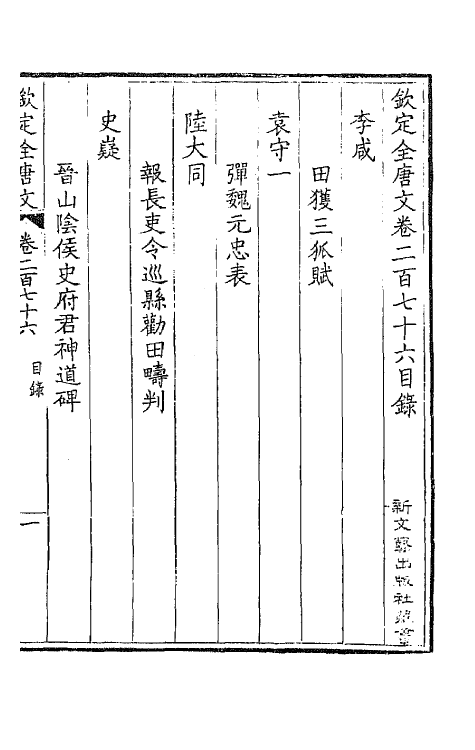 欽定全唐文卷二百七十六目錄
李咸
田獲三狐賦
袁守一
彈魏元忠表
陸大同
報長吏令巡縣勸田疇判
史嶷
晉山陰侯史府君神道碑
欽定全唐文
卷二百七十六
目錄
一
新文藝出版社